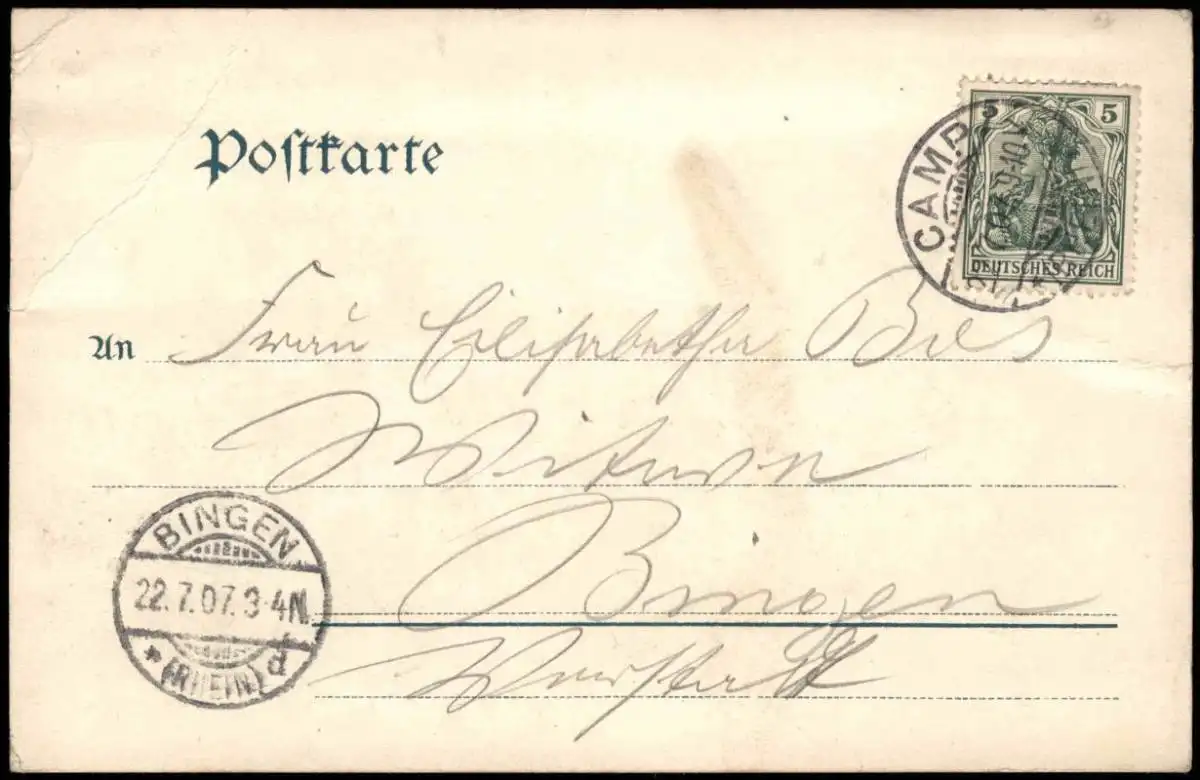 Postkarte
5 5
DEUTSCHES REICH
CAMP
9-10V
An Frau Elisabetha Bes
Witwe
Bingen
BINGEN
22.7.07.3-4N.
* (RHEIN) d